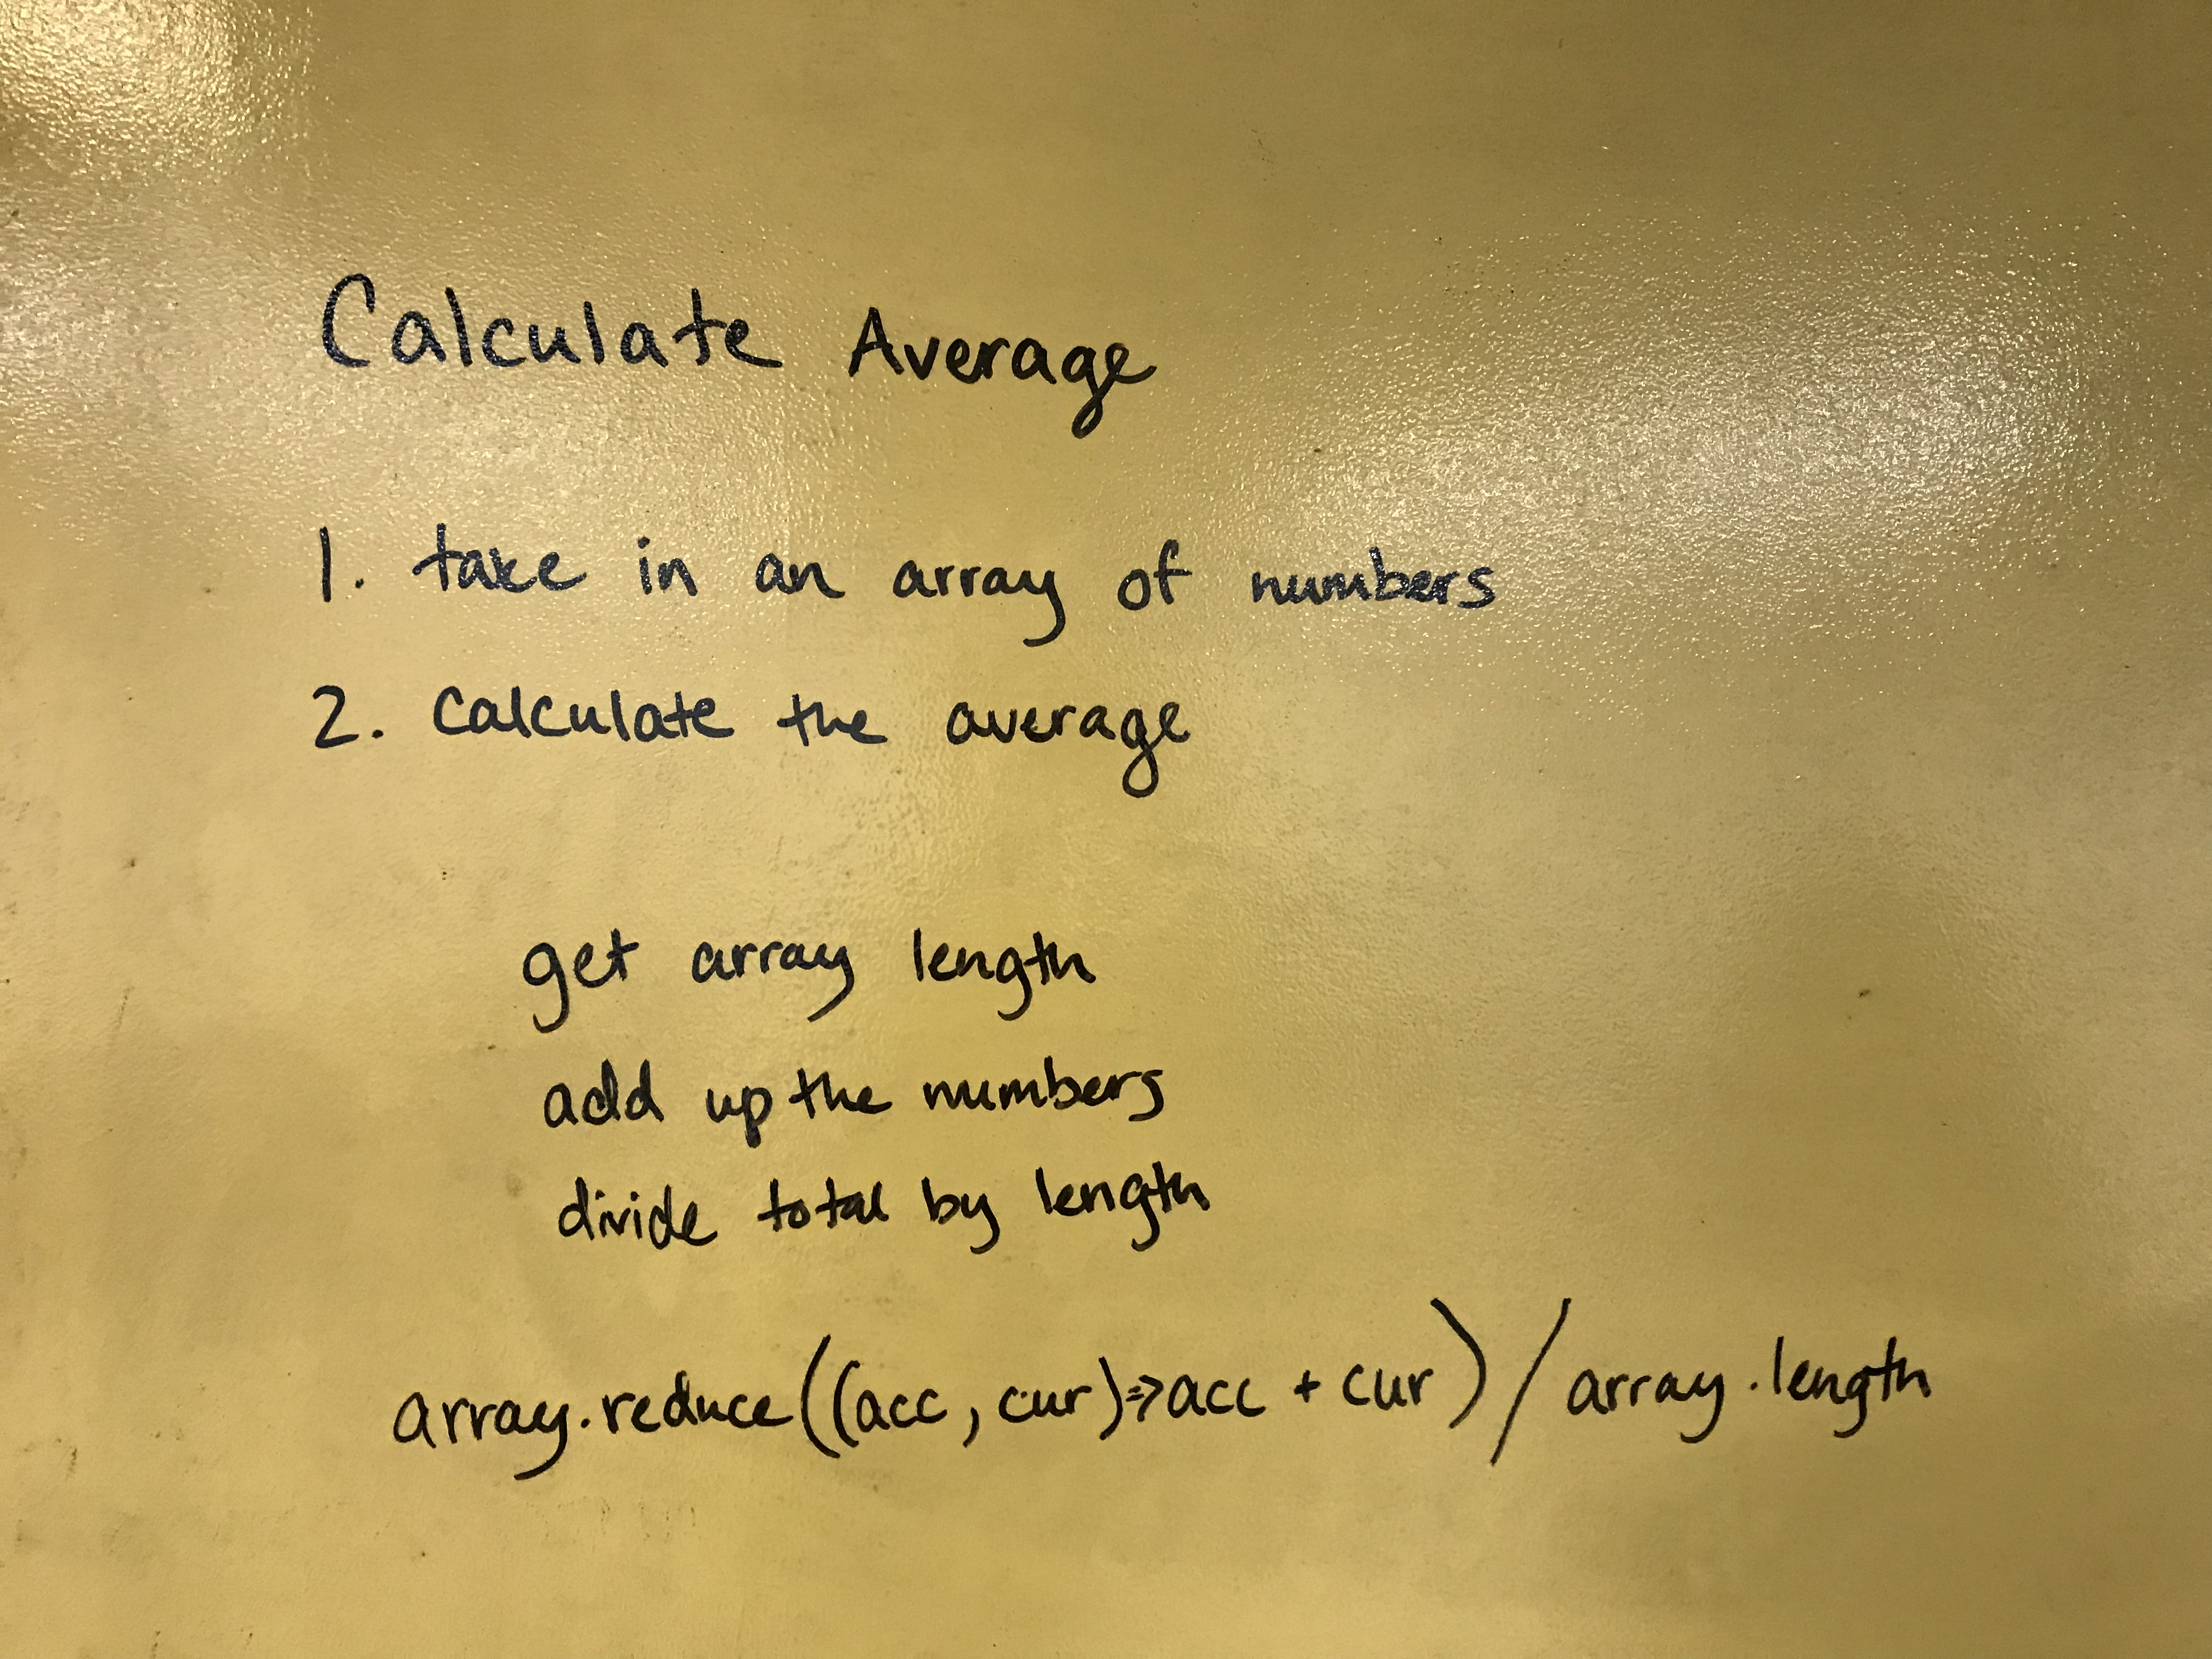 Calculate Average
1. take in an array of numbers
2. Calculate the average
get array length
add up the numbers
divide total by length
array.reduce((acc, cur)=>acc + cur) / array.length